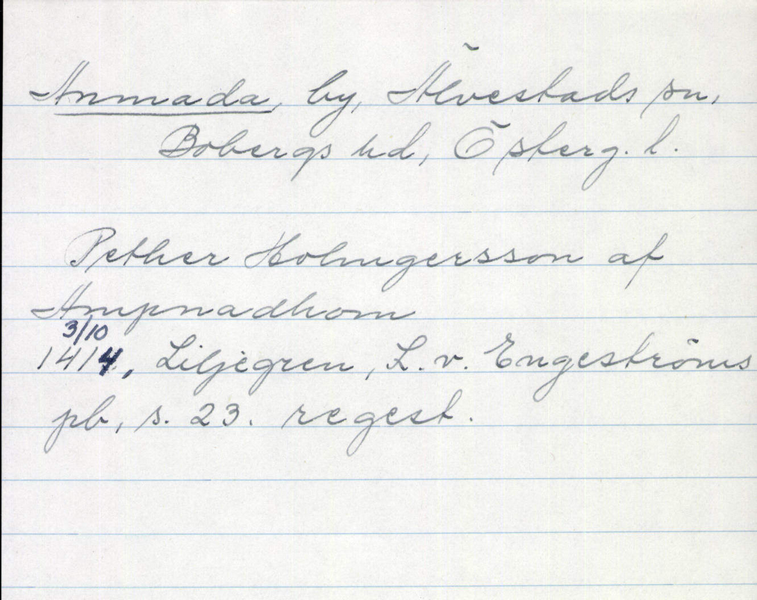 Anmada, by, Älvestads sn,
Bobergs hd, Östergs. l.
Pether Holmgersson af
Ampnadhom
3/10
1414, Liljegren, L. v. Engeströms
pb, s. 23. regest.